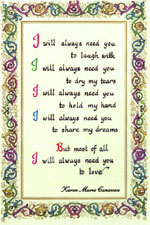 I will always need you
to laugh with
I will always need you
to dry my tears
I will always need you
to hold my hand
I will always need you
to share my dreams
But most of all
I will always need you
to love
Karen Marie Canavan